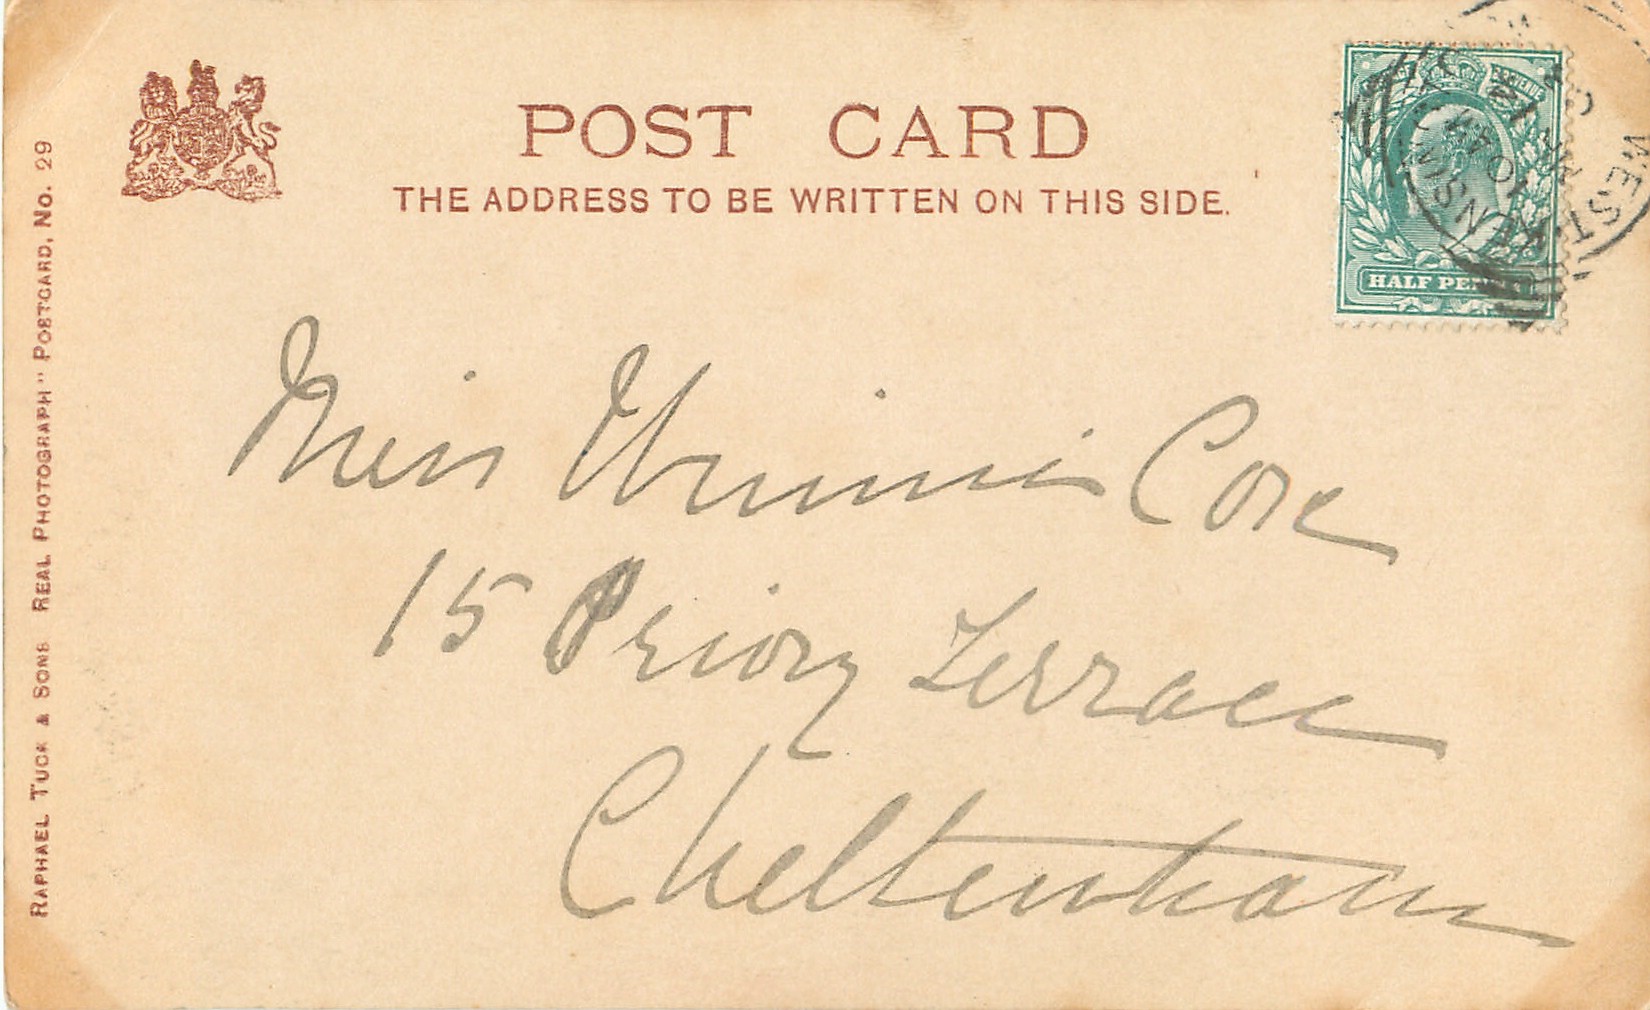 POST CARD
THE ADDRESS TO BE WRITTEN ON THIS SIDE.
RAPHAEL TUCK & SONS REAL PHOTOGRAPH" POSTCARD, No. 29
HALF PENNY
WEST KENSINGTON
Miss Winnie Core
15 Priory Terrace
Cheltenham